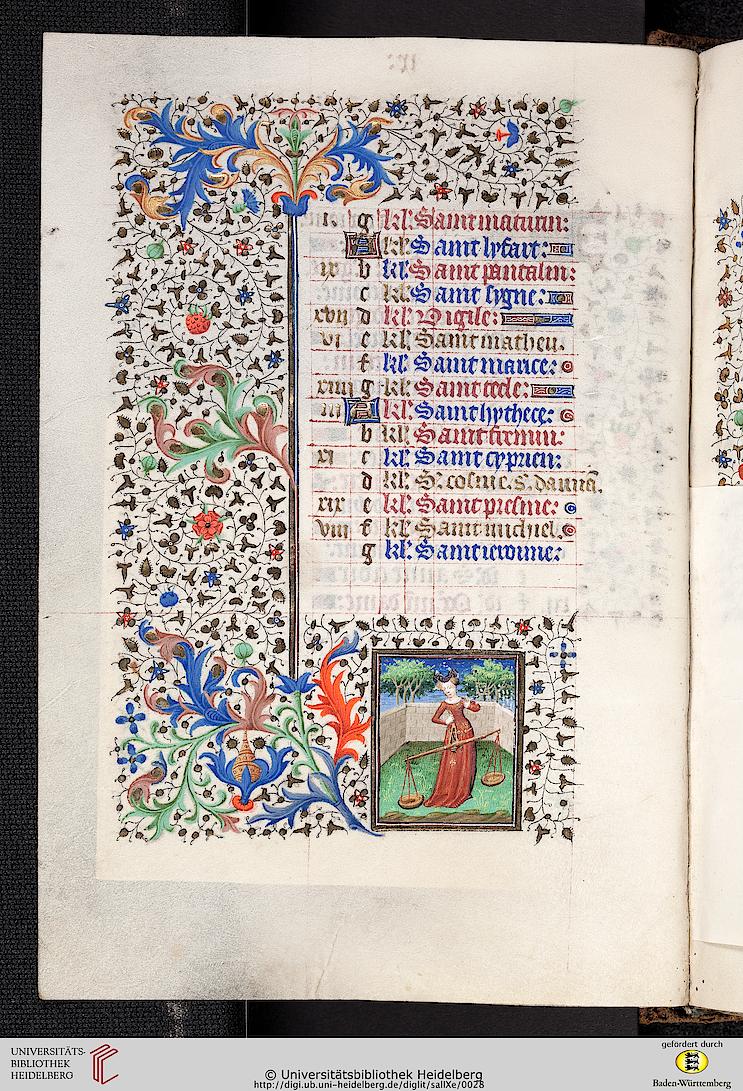 i g kl' Saint maturin:
A kl' Saint lyfart:
ix b kl' Saint pantalin:
c kl' Saint sygne:
xvii d kl' Vigile:
vi e kl' Saint matheu.
f kl' Saint maurice:
xiiii g kl' Saint tecle:
iii A kl' Saint hythece:
b kl' Saint fremin:
xi c kl' Saint cyprien:
d kl' S. cosme. s. damiā.
xix e kl' Saint presme:
viii f kl' Saint michiel.
g kl' Saint ierome:
UNIVERSITÄTS-
BIBLIOTHEK
HEIDELBERG
© Universitätsbibliothek Heidelberg
http://digi.ub.uni-heidelberg.de/diglit/sallXe/0028
gefördert durch
Baden-Württemberg